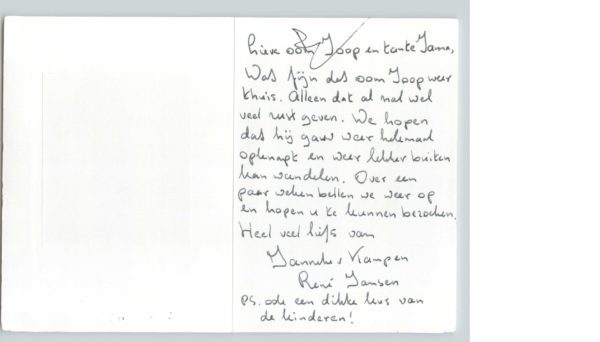 lieve oom Joop en tante Janna,
Wat fijn dat oom Joop weer
thuis. Alleen dat al zal wel
veel rust geven. We hopen
dat hij gauw weer helemaal
opknapt en weer lekker buiten
kan wandelen. Over een
paar weken bellen we weer op
en hopen u te kunnen bezoeken.
Heel veel liefs van
Janneke Kampen
René Jansen
ps. ook een dikke kus van
de kinderen!